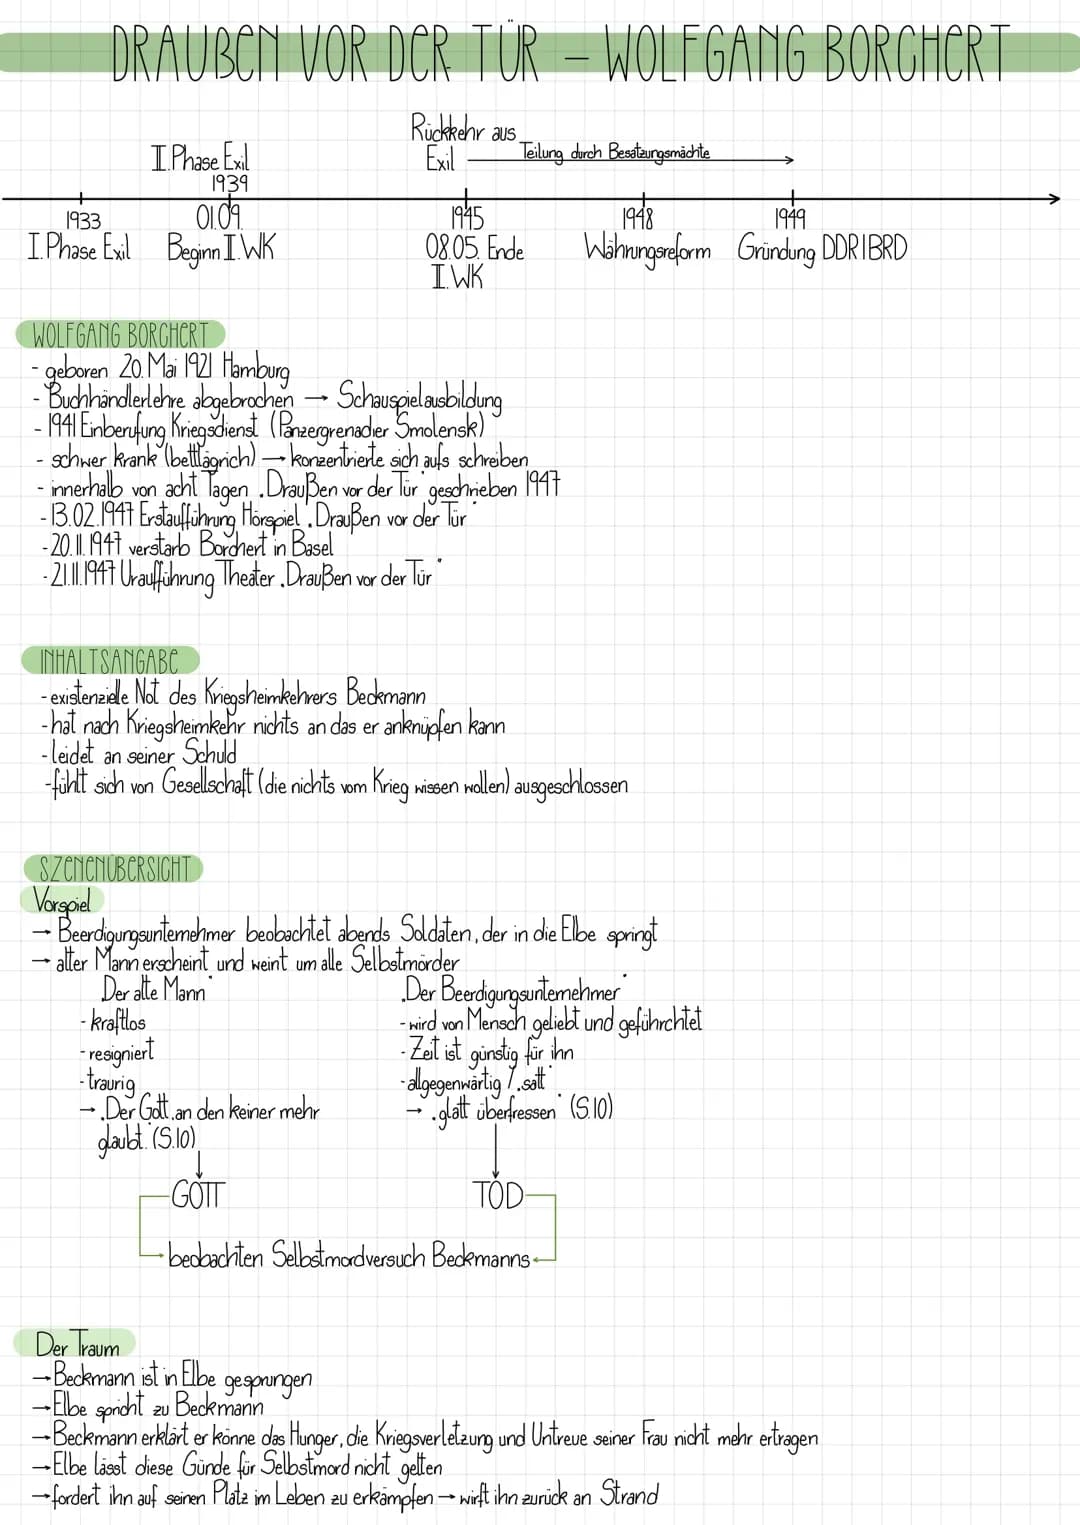 DRAUßEN VOR DER TÜR – WOLFGANG BORCHERT
Rückkehr aus
I.Phase Exil
Exil
Teilung durch Besatzungsmächte
1939
1933
01.09.
1945
1948
1949
I.Phase Exil
Beginn I.WK
08.05. Ende
Währungsreform
Gründung DDR|BRD
I.WK
WOLFGANG BORCHERT
- geboren 20. Mai 1921 Hamburg
- Buchhändlerlehre abgebrochen → Schauspielausbildung
- 1941 Einberufung Kriegsdienst (Panzergrenadier Smolensk)
- schwer krank (bettlägrich) → konzentrierte sich aufs schreiben
- innerhalb von acht Tagen „Draußen vor der Tür" geschrieben 1947
- 13.02.1947 Erstaufführung Hörspiel „Draußen vor der Tür"
- 20.11.1947 verstarb Borchert in Basel
- 21.11.1947 Uraufführung Theater „Draußen vor der Tür"
INHALTSANGABE
- existenzielle Not des Kriegsheimkehrers Beckmann
- hat nach Kriegsheimkehr nichts an das er anknüpfen kann
- leidet an seiner Schuld
- fühlt sich von Gesellschaft (die nichts vom Krieg wissen wollen) ausgeschlossen
SZENENÜBERSICHT
Vorspiel
→ Beerdigungsunternehmer beobachtet abends Soldaten, der in die Elbe springt
→ alter Mann erscheint und weint um alle Selbstmörder
„Der alte Mann"
„Der Beerdigungsunternehmer"
- kraftlos
- wird von Mensch geliebt und geführchtet
- resigniert
- Zeit ist günstig für ihn
- traurig
- allgegenwärtig / „satt"
→ „Der Gott, an den keiner mehr
→ „glatt überfressen" (S.10)
glaubt." (S.10)
GOTT
TOD
beobachten Selbstmordversuch Beckmanns
Der Traum
→ Beckmann ist in Elbe gesprungen
→ Elbe spricht zu Beckmann
→ Beckmann erklärt er könne das Hunger, die Kriegsverletzung und Untreue seiner Frau nicht mehr ertragen
→ Elbe lässt diese Günde für Selbstmord nicht gelten
→ fordert ihn auf seinen Platz im Leben zu erkämpfen → wirft ihn zurück an Strand